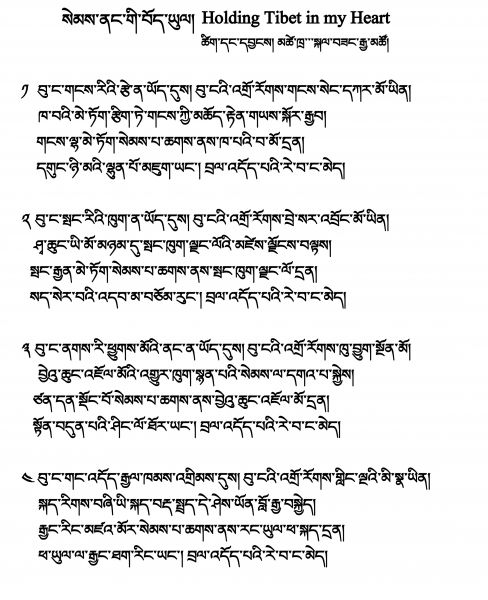 སེམས་ནང་གི་བོད་ཡུལ། Holding Tibet in my Heart
ཚིག་དང་དབྱངས། མཚོ་ཁྲ་་་སྐལ་བཟང་རྒྱ་མཚོ།
༡ བུ་ང་གངས་རིའི་རྩེ་ན་ཡོད་དུས། བུ་ངའི་འགྲོ་རོགས་གངས་སེང་དཀར་མོ་ཡིན།
ཁ་བའི་མེ་ཏོག་རྩིག་ཏེ་གངས་ཀྱི་མཆོད་རྟེན་གཡས་སྐོར་རྒྱབ།
གངས་ལྷ་མེ་ཏོག་སེམས་པ་ཆགས་ནས་ཁ་པའི་བ་མོ་དྲན།
དགུང་ཉི་མའི་ལྷུན་པོ་མཇུག་ཡང་། བྲལ་འདོད་པའི་རེ་བ་ང་མེད།
༢ བུ་ང་སྤང་རིའི་ཁུག་ན་ཡོད་དུས། བུ་ངའི་འགྲོ་རོགས་བྲེ་སར་འབྲོང་མོ་ཡིན།
ཤྭ་ཆུང་ཡི་མོ་མཉམ་དུ་སྤང་ཁུག་ལྗང་ལོའི་མཛེས་ལྗོངས་བལྟས།
སྤང་རྒྱན་མེ་ཏོག་སེམས་པ་ཆགས་ནས་སྤང་ཁུག་ལྗང་ལོ་དྲན།
སད་སེར་བའི་འདབ་མ་བཅོམ་རུང་། བྲལ་འདོད་པའི་རེ་བ་ང་མེད།
༣ བུ་ང་ནགས་རི་ཕྱུགས་མོའི་ནང་ན་ཡོད་དུས། བུ་ངའི་འགྲོ་རོགས་ཁུ་བྱུག་སྔོན་མོ།
བྱེའུ་ཆུང་འཇོལ་མོའི་འགྱུར་ཁུག་སྙན་པའི་སེམས་ལ་དགའ་བ་སྐྱེས།
ཙན་དན་སྡོང་པོ་སེམས་པ་ཆགས་ནས་བྱེའུ་ཆུང་འཇོལ་མོ་དྲན།
སྟོན་བདུན་པའི་ཤིང་ལོ་ཐོར་ཡང་། བྲལ་འདོད་པའི་རེ་བ་ང་མེད།
༤ བུ་ང་གང་འདོད་རྒྱལ་ཁམས་འགྲིམས་དུས། བུ་ངའི་འགྲོ་རོགས་གླིང་ལྔའི་མི་སྣ་ཡིན།
སྐད་རིགས་བཞི་ཡི་སྐད་བརྡ་སྤྲད་དེ་ཤེས་ཡོན་བློ་རྒྱ་བསྐྱེད།
རྒྱང་རིང་མཛའ་མོར་སེམས་པ་ཆགས་ནས་རང་ཡུལ་ཕ་སྐད་དྲན།
ཕ་ཡུལ་ལ་རྒྱང་ཐག་རིང་ཡང་། བྲལ་འདོད་པའི་རེ་བ་ང་མེད།